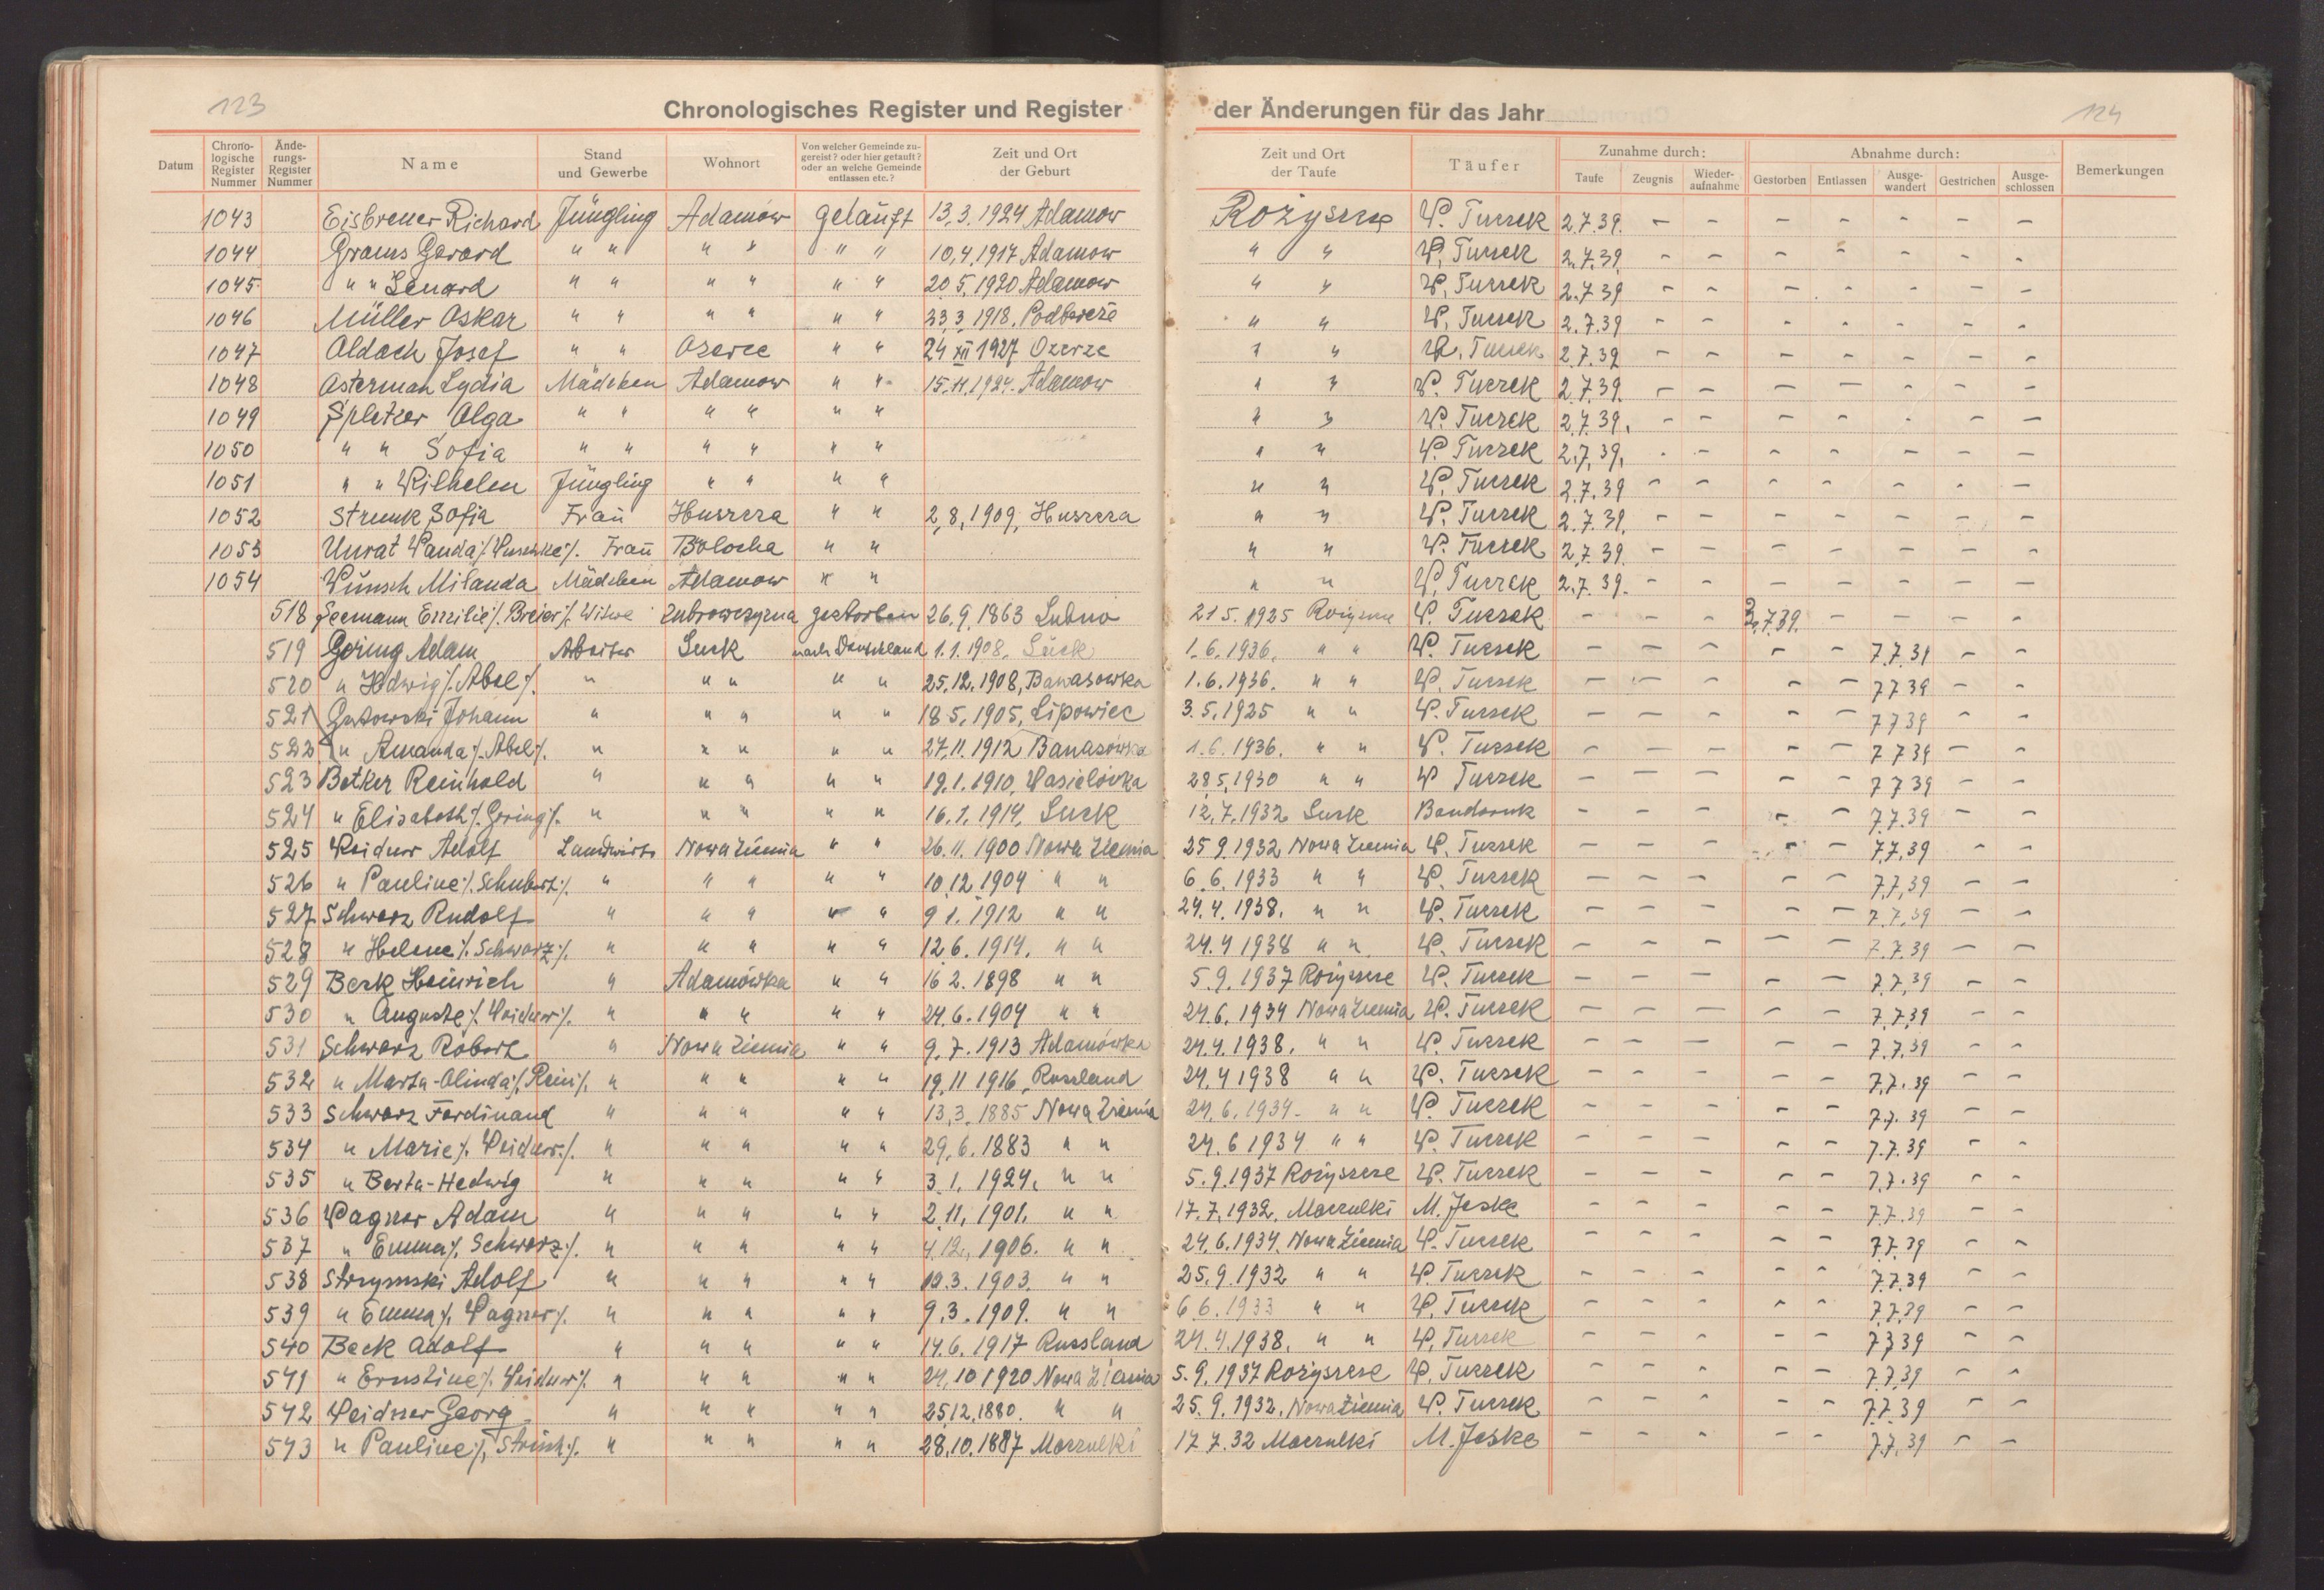 123
124
Chronologisches Register und Register der Änderungen für das Jahr
Datum | Chronologische Register Nummer | Änderungs-Register Nummer | Name | Stand und Gewerbe | Wohnort | Von welcher Gemeinde zugereist? oder hier getauft? oder an welche Gemeinde entlassen etc.? | Zeit und Ort der Geburt | Zeit und Ort der Taufe | Täufer | Zunahme durch: Taufe | Zeugnis | Wiederaufnahme | Abnahme durch: Gestorben | Entlassen | Ausgewandert | Gestrichen | Ausgeschlossen | Bemerkungen
1043 Eisbrener Richard Jüngling Adamow getauft 13.3.1924 Adamow W. Tuczek 2.7.39. – – – – – – –
1044 Grams Gerard " " " " " " 10.4.1917 Adamow " " W. Tuczek 2.7.39. – – – – – – –
1045 " " Lenard " " " " " " 20.5.1920 Adamow " " W. Tuczek 2.7.39 – – – – – – –
1046 Müller Oskar " " " " " " 23.3.1918. " " W. Tuczek 2.7.39 – – – – – – –
1047 Aldach Josef " " " " 24 XII 1927 " " W. Tuczek 2.7.39 – – – – – – –
1048 Osterman Lydia Mädchen Adamow " " 15.11.1924. Adamow " " W. Tuczek 2.7.39. – – – – – – –
1049 Spletzer Olga " " " " " " " " W. Tuczek 2.7.39. – – – – – – –
1050 " " Sofia " " " " " " " " W. Tuczek 2.7.39. – – – – – – –
1051 " " Wilhelm Jüngling " " " " " " W. Tuczek 2.7.39 – – – – – – –
1052 Strunk Sofia Frau Huszcza " " 2.8.1909, Huszcza " " W. Tuczek 2.7.39. – – – – – – –
1053 Unrat Wanda Frau " " " " W. Tuczek 2.7.39. – – – – – – –
1054 Wünsch Milanda Mädchen Adamow " " " " W. Tuczek 2.7.39. – – – – – – –
518 Seemann Emilie /. Breier /. Witwe gestorben 26.9.1863 Lubno 21 5.1925 W. Tuczek – – – 2.7.39. – – – –
519 Göring Adam Arbeiter Luck nach Deutschland 1.1.1908. Luck 1.6.1936. " " W. Tuczek – – – – – 7.7.39 – –
520 " Hedwig /. Abel /. " " " " " 25.12.1908, Banasowka 1.6.1936. " " W. Tuczek – – – – – 7.7.39 – –
521 Gutowski Johann " " " " " 18.5.1905, Lipowiec 3.5.1925 " " W. Tuczek – – – – – 7.7.39 – –
522 " Amanda /. Abel /. " " " " " 27.11.1912 Banasowka 1.6.1936. " " W. Tuczek – – – – – 7.7.39 – –
523 Betker Reinhold " " " " " 19.1.1910, Wasielówka 28.5.1930 " " W. Tuczek – – – – – 7.7.39 – –
524 " Elisabeth /. Göring /. " " " " " 16.1.1914, Luck 12.7.1932 Luck Bandzruk – – – – – 7.7.39 – –
525 Weidner Adolf Landwirt Nowa Ziemia " " 26.11.1900 Nowa Ziemia 25 9.1932 Nowa Ziemia W. Tuczek – – – – – 7.7.39 – –
526 " Pauline /. Schubert /. " " " " " 10.12.1904 " " 6.6.1933 " " W. Tuczek – – – – – 7.7.39 – –
527 Schwarz Rudolf " " " " " 9.1.1912 " " 24.4.1938. " " W. Tuczek – – – – – 7.7.39 – –
528 " Helene /. Schwarz /. " " " " " 12.6.1914. " " 24.4 1938 " " W. Tuczek – – – – – 7.7.39 – –
529 Berk Heinrich " Adamówka " " 16 2.1898 " " 5.9.1937 Rożyszcze W. Tuczek – – – – – 7.7.39 – –
530 " Auguste /. Weidner /. " " " " " 24.6.1904 " " 24.6.1934 Nowa Ziemia W. Tuczek – – – – – 7.7.39 – –
531 Schwarz Robert " Nowa Ziemia " " 9.7.1913 Adamówka 24.4.1938. " " W. Tuczek – – – – – 7.7.39 – –
532 " Marta-Olinda /. Rein /. " " " " " 19.11 1916, Russland 24.4 1938 " " W. Tuczek – – – – – 7.7.39 – –
533 Schwarz Ferdinand " " " " " 13.3.1885 Nowa Ziemia 24.6.1934. " " W. Tuczek – – – – – 7.7.39 – –
534 " Marie /. Weidner /. " " " " " 29.6.1883 " " 24.6 1934 " " W. Tuczek – – – – – 7.7.39 – –
535 " Berta-Hedwig " " " " " 3.1.1924. " " 5.9.1937 Rożyszcze W. Tuczek – – – – – 7.7.39 – –
536 Wagner Adam " " " " " 2.11.1901. " " 17.7.1932. Moczulki M. Jeske – – – – – 7.7.39 – –
537 " Emma /. Schwarz /. " " " " " 4.12.1906. " " 24.6.1934. Nowa Ziemia W. Tuczek – – – – – 7.7.39 – –
538 Strzymski Adolf " " " " " 3.1903. " " 25.9.1932 " " W. Tuczek – – – – – 7.7.39 – –
539 " Emma /. Wagner /. " " " " " 9.3.1909. " " 6 6.1933 " " W. Tuczek – – – – – 7.7.39 – –
540 Beck Adolf " " " " " 14.6.1917 Russland 24.4.1938. " " W. Tuczek – – – – – 7.7.39 – –
541 " Ernstine /. Weidner /. " " " " " 24.10 1920 Nowa Ziemia 5.9.1937 Rożyszcze W. Tuczek – – – – – 7.7.39 – –
542 Weidner Georg " " " " " 25.12.1880. " " 25.9.1932. Nowa Ziemia W. Tuczek – – – – – 7.7.39 – –
543 " Pauline /. /. " " " " " 28.10.1887 Moczulki 17.7.32 Moczulki M. Jeske – – – – – 7.7.39 – –